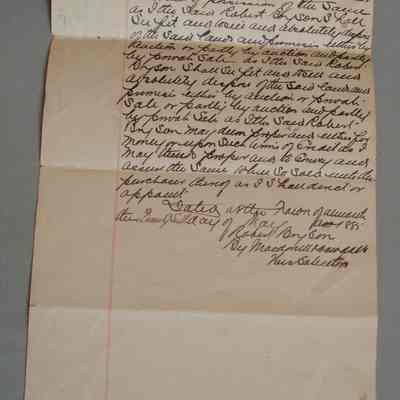 possession of the Same
as I the Said Robert Bryson Shall
See fit and will and absolutely dispose
of the Said Lands and premises either by
Auction or partly by auction and partly
by private Sale as I the Said Robert
Bryson Shall See fit and will and
absolutely dispose of the Said Land and
premises either by auction or private
Sale or partly by auction and partly
by private Sale as I the Said Robert
Bryson may deem proper and either for
Money or upon Such terms of Credit as I
May think proper and to Convey and
assure the Same When So Sold unto the
purchaser thereof as I Shall direct or
appoint
Dated at the Town of
the day of May
Robert Bryson
By
his Solicitors